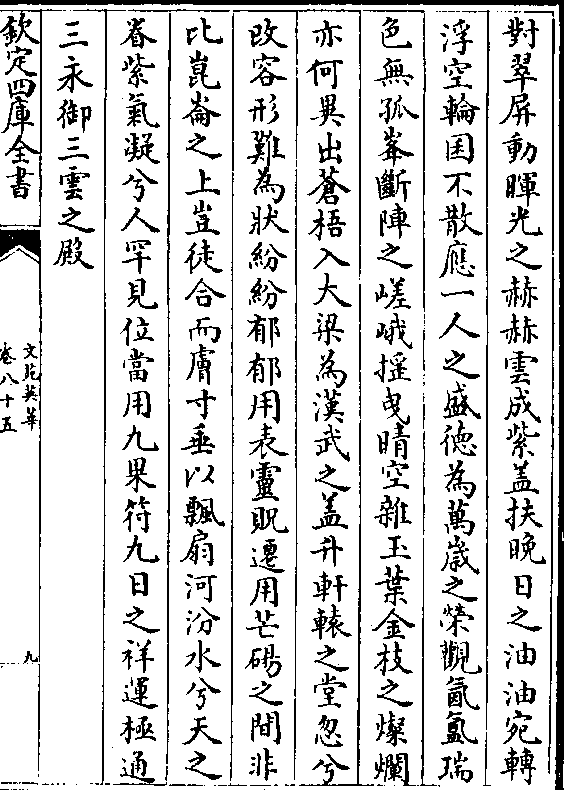 對翠屏動暉光之赫赫雲成紫蓋扶晚日之油油宛轉
浮空輪囷不散應一人之盛徳為萬歳之榮觀氤氲瑞
色無孤峯斷陣之嵯峨摇曵晴空雜玉葉金枝之燦爛
亦何異出蒼梧入大梁為漢武之蓋升軒轅之堂忽兮
改容形難為狀紛紛郁郁用表靈貺遷用芒碭之間非
比崑崙之上豈徒合而膚寸垂以飄扇河汾水兮天之
眷紫氣凝兮人罕見位當用九果符九日之祥運極通
三永御三雲之殿
欽定四庫全書
文苑英華
卷八十五
九